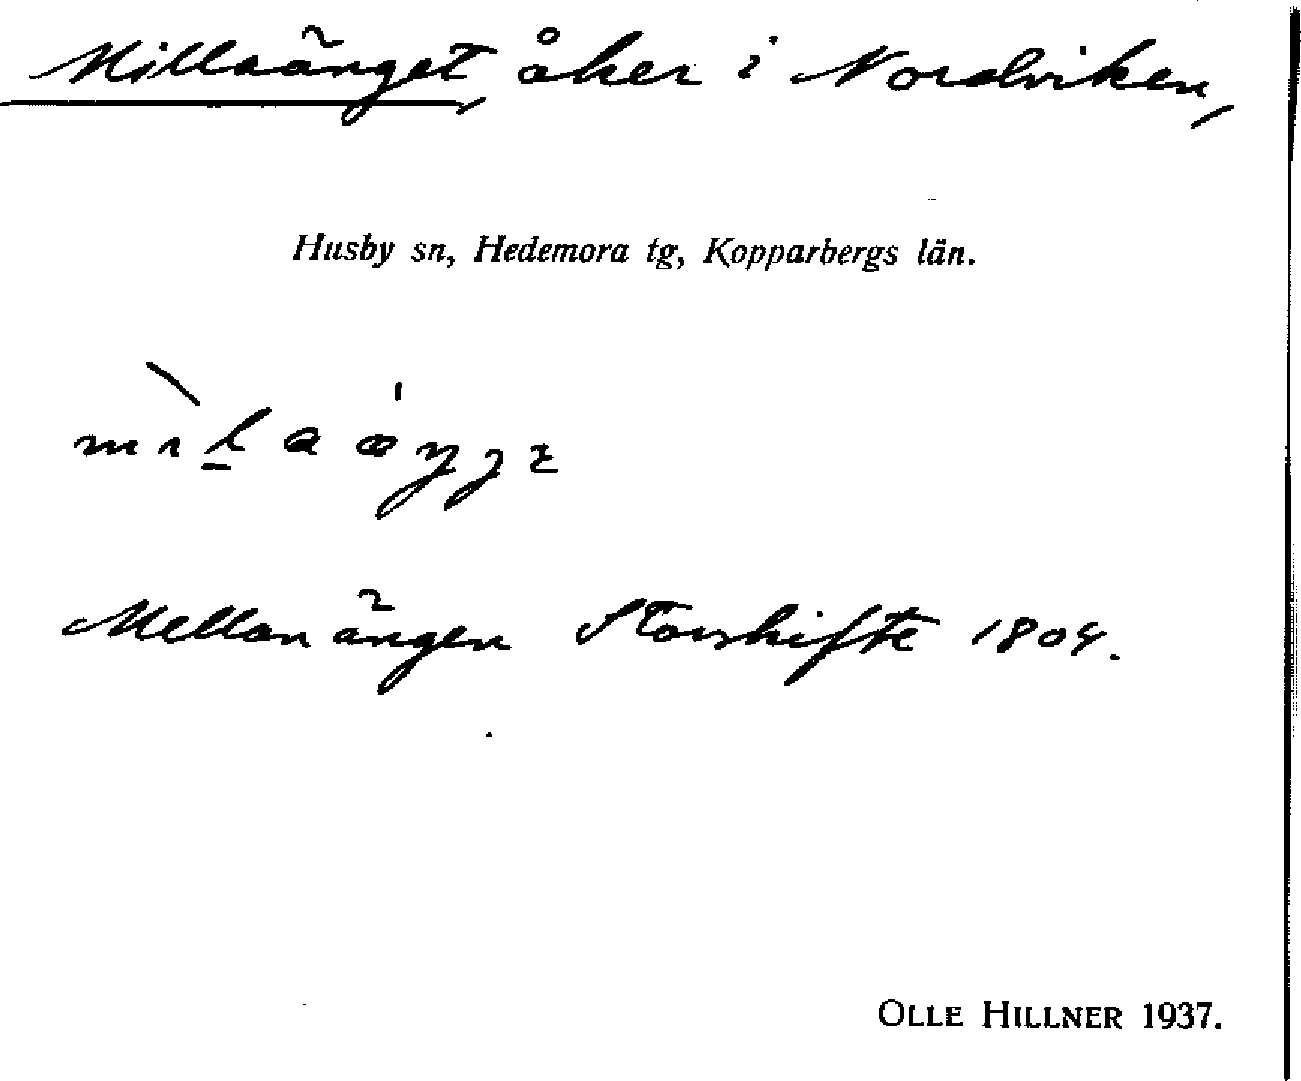 Millaänget, åker i Nordviken,
Husby sn, Hedemora tg, Kopparbergs län.
Mellanängen Storskifte 1804.
OLLE HILLNER 1937.